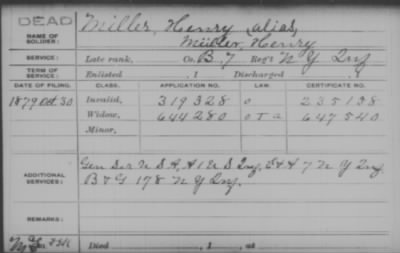 DEAD
NAME OF SOLDIER:
Miller, Henry alias,
Müller, Henry
SERVICE:
Late rank, Co. B, 7 Reg't N Y Inf
TERM OF SERVICE:
Enlisted , 1 Discharged , 1
DATE OF FILING. CLASS. APPLICATION NO. LAW. CERTIFICATE NO.
1879 Oct. 30 Invalid, 319328 o 235138
Widow, 644280 o T a 647540
Minor,
ADDITIONAL SERVICES:
Gen Ser U S A, H 1 U S Inf, & H 7 N Y Inf.
B & G 178 N Y Inf.
REMARKS:
Died , 1 , at